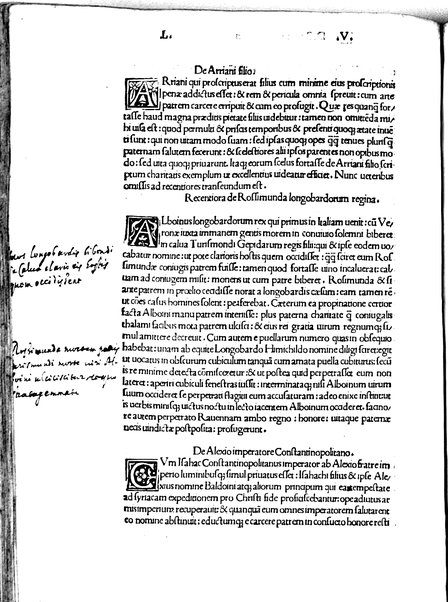 L. .V.
De Arriani filio.
ARriani qui proscriptus erat filius cum minime eius proscriptionis
pœnæ addictus esset: & rem & pericula omnia spreuit: cum arte
patrem carcere eripuit & cum eo profugit. Quæ res quanq̃ for-
tasse haud magna præditis pietate filiis uidebitur: tamen non omittẽda mi-
hi uisa est: quod permulti & priscis temporibus & præsenti quoq; ætate inuẽ
ti sunt: qui non uitam modo suam: sed ipsas quoq; opes q̃q̃ tenues plurisq̃
patrernam salutem fecerunt: & scelestiores alii ipsos parentes non opibus mo-
do: sed uita quoq; priuarunt. Itaq; eorum scelus fortasse de Arriani filio scri-
ptum charitatis exemplum ut excellentius uideatur efficiet. Nunc ueteribus
omissis ad recentiores transeundum est.
Recentiora de Rossimunda longobardorum regina.
ALboinus longobardorum rex qui primus in Italiam uenit: cũ Ve-
ronæ iuxta immanem gentis morem in conuiuio solemni biberet
in calua Turismondi Gepidarum regis filii: qui & ipse eodem uo-
cabatur nomine: ut pote clarioris hostis quem occidisset: q̃q̃ sciret eum Ros
simundæ coniugis patrem fuisse: tamen quod fortasse uino incaluerat: cal-
uam ad coniugem misit: monens ut cum patre biberet. Rossimunda & si
ante patrem in prælio cecidisse norat a longobardis cæsum: eam tamen rẽ
ut cões casus homines solent: perferebat. Cæterum ea propinatione certior
facta Alboini manu patrem interisse: plus paterna charitate q̃ coniugalis
thalami facibus mota patrem ulcisci: & eius rei gratia uirum regnumq; si-
mul amittere decreuit. Cum autem e puellarum numero quas in obsequio
habebat: unam ab equite Longobardo Hemichildo nomine diligi sciret: egit
ut uocatus in obscurum cubiculum tanquã cum amata puella cubiturus: secũ
is re minime detecta cõmisceretur: & ut postea quid perpetrasset eum non
lateret: aperiri cubiculi fenestras iussit: interminataq; nisi Alboinum uirum
suum occideret se perpetrati flagitii eum accusaturam: adeo enixe institit
is uerbis minisq; uictus noctu in lecto iacentem Alboinum occideret. facino
re autem perpetrato Rauennam ambo regno: honore: uitaque paternæ
necis uindictæ postposita: profugerunt.
De Alexio imperatore Constantinopolitano.
CVm Isahac Constantinopolitanus imperator ab Alexio fratre im-
perio luminibusq; simul priuatus esset: Isahachi filius & ipse Ale-
xius nomine Baldoini atq; aliorum principum qui ea tempestate
ad syriacam expeditionem pro Christi fide profisciscebantur: ope adiutus ar
mis imperium recuperauit: & quanquã eum omnes imperatorem salutarent
eo nomine abstinuit: eductumq; e carcere patrem in consueto honore resti